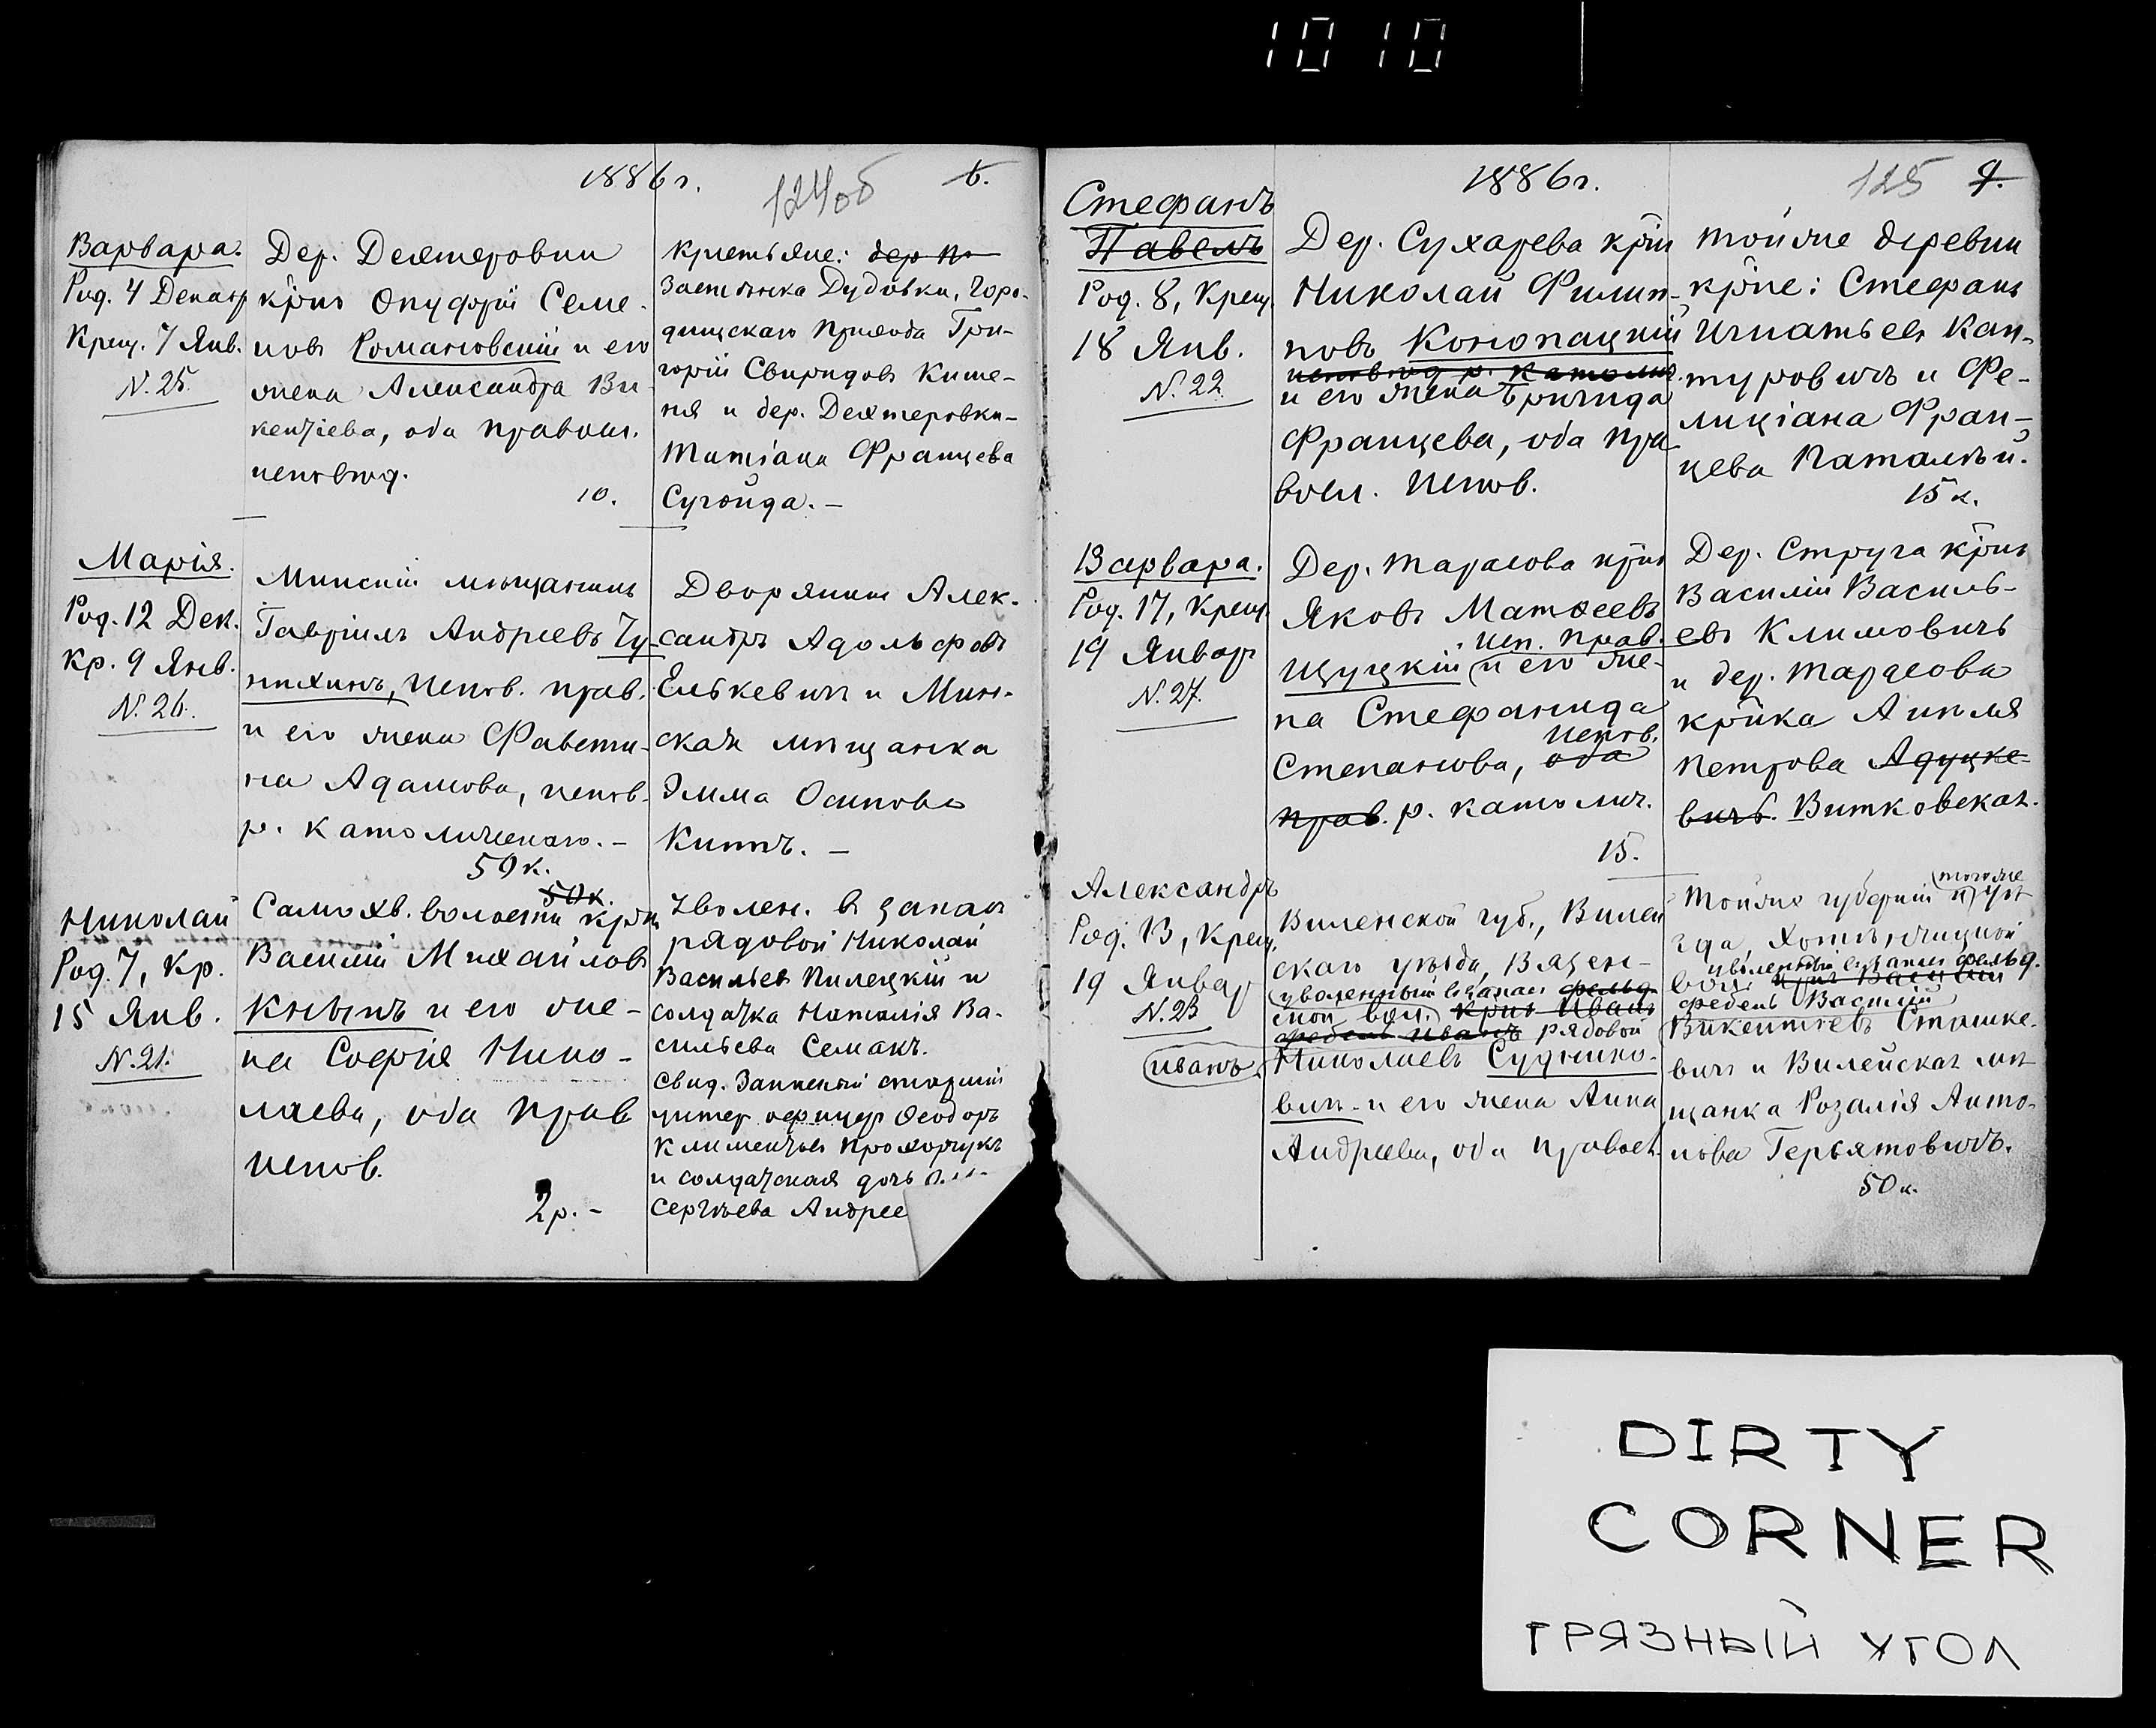 10 10
1886 г.
124об
6.
Варвара.
Род. 4 Декабр
Крещ. 7 Янв.
N. 25.
Дер. Дегтеровки
крнъ Онуфрій Семе-
новъ Романовскій и его
жена Александра Ви-
кентіева, оба правосл.
исповѣд.
10.
Крестьяне: дер
Застѣнка Дудовки, Горо-
дищскаго прихода Гри-
горій Свиридовъ Кише-
ня и дер. Дегтеровки
Татіана Францева
Сугойда. —
Марія.
Род. 12 Дек.
Кр. 9 Янв.
N. 26.
Минскій мѣщанинъ
Гавріилъ Андреевъ Чу-
пихинъ, испов. прав.
и его жена Фавсти-
на Адамова, испов.
р. католическаго. —
50 к.
Дворянинъ Алек-
сандръ Адольфовъ
Елькевичъ и Мин-
ская мѣщанка
Эмма Осипова
Китъ. —
Николай
Род. 7, Кр.
15 Янв.
N. 21.
50 к.
Самохв. волости крнъ
Василій Михайловъ
Кнышъ и его же-
на Софія Нико-
лаева, оба прав
испов.
2 р. -
Уволен. въ запасъ
рядовой Николай
Васильевъ Пилецкій и
солдатка Наталія Ва-
сильева Семакъ.
Свид. Запасный старшій
унтер. офицер Ѳеодоръ
Климентьевъ Прохорчукъ
и солдатская дочь
Сергѣева Андрее
1886 г.
125
9.
Стефанъ
Павелъ
Род. 8, Крещ.
18 Янв.
N. 22.
Дер. Сухарева крнъ
Николай Филип-
повъ Конопацкій
исповѣд р. католич.
и его жена Бригида
Францева, оба пра
восл. испов.
тойже деревни
крне: Стефанъ
Игнатьевъ Кан-
туровичъ и Фе-
лиціана Фран-
цева Паталѣй.
15 к.
Варвара.
Род. 17, Крещ.
19 Январ
N. 27.
Дер. Тарасова крнъ
Яковъ Матѳеевъ
исп. прав.
Щуцкій и его же-
на Стефанида
испов.
Степанова, оба
прав. р. католич.
15.
Дер. Струга крнъ
Василій Василь-
евъ Климовичъ
и дер. Тарасова
крнка Анна
Петрова Адуцке-
вичъ. Витковская.
Александръ
Род. 13, Крещ.
19 Январ
N. 23
Иванъ
Виленской губ., Вилей
скаго уѣзда, Вязен-
уволенный въ запасъ фельд
ской вол. крнъ Иванъ
фебель Иванъ рядовой
Николаевъ Суднико-
вичъ и его жена Анна
Андреева, оба правосл.
тогоже
Тойже губерніи и уѣ
зда, Хотѣнчицкой
уволенный въ запасъ фельд.
вол. крнъ Василій
фебель Василій
Викентіевъ Сташке-
вичъ и Вилейская мѣ
щанка Розалія Анто-
нова Гербятовичъ.
50 к.
DIRTY
CORNER
ГРЯЗНЫЙ УГОЛ